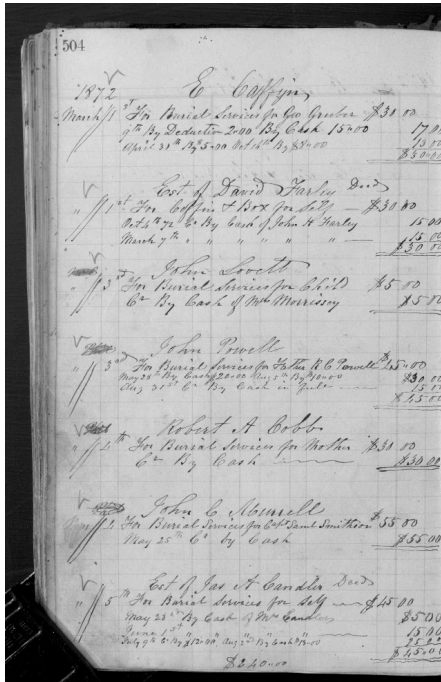 504
1872 E Coffyn
March 1st For Burial Services for Geo Gruber $30 00
9th By Deduction 2=00 By Cash 15=00 17 00
April 30th By $5=00 Oct 16th By $8=00 13 00
$30=00
Est. of David Farley Decd
" 1st For Coffin & Box for Self $30 00
Oct 4th 72 Cr By Cash of John H Farley 15 00
March 7th " " " " " 15 00
$30 00
John Lovett
" 3rd For Burial Services for Child $5 00
Cr By Cash of Mrs Morrissey $5 00
John Powell
" 3rd For Burial Services for Father R C Powell $45=00
May 28th By Cash $20=00 Aug 5th By $10=00 $30 00
Aug 31st Cr By Cash in full 15 00
$45 00
Robert A Cobbs
" 4th For Burial Services for Mother $30 00
Cr By Cash $30 00
John C Murrell
" 4 For Burial Services for Capt Saml Smithson $55 00
May 25th Cr by Cash $55 00
Est of Jas A Candler Decd
" 5th For Burial Services for Self $45 00
May 23rd By Cash of Mrs Candler $5 00
June 1st " " " 15 00
July 9th Cr By $12=00 Aug 2nd By Cash $13=00 25 00
$45 00
$240=00